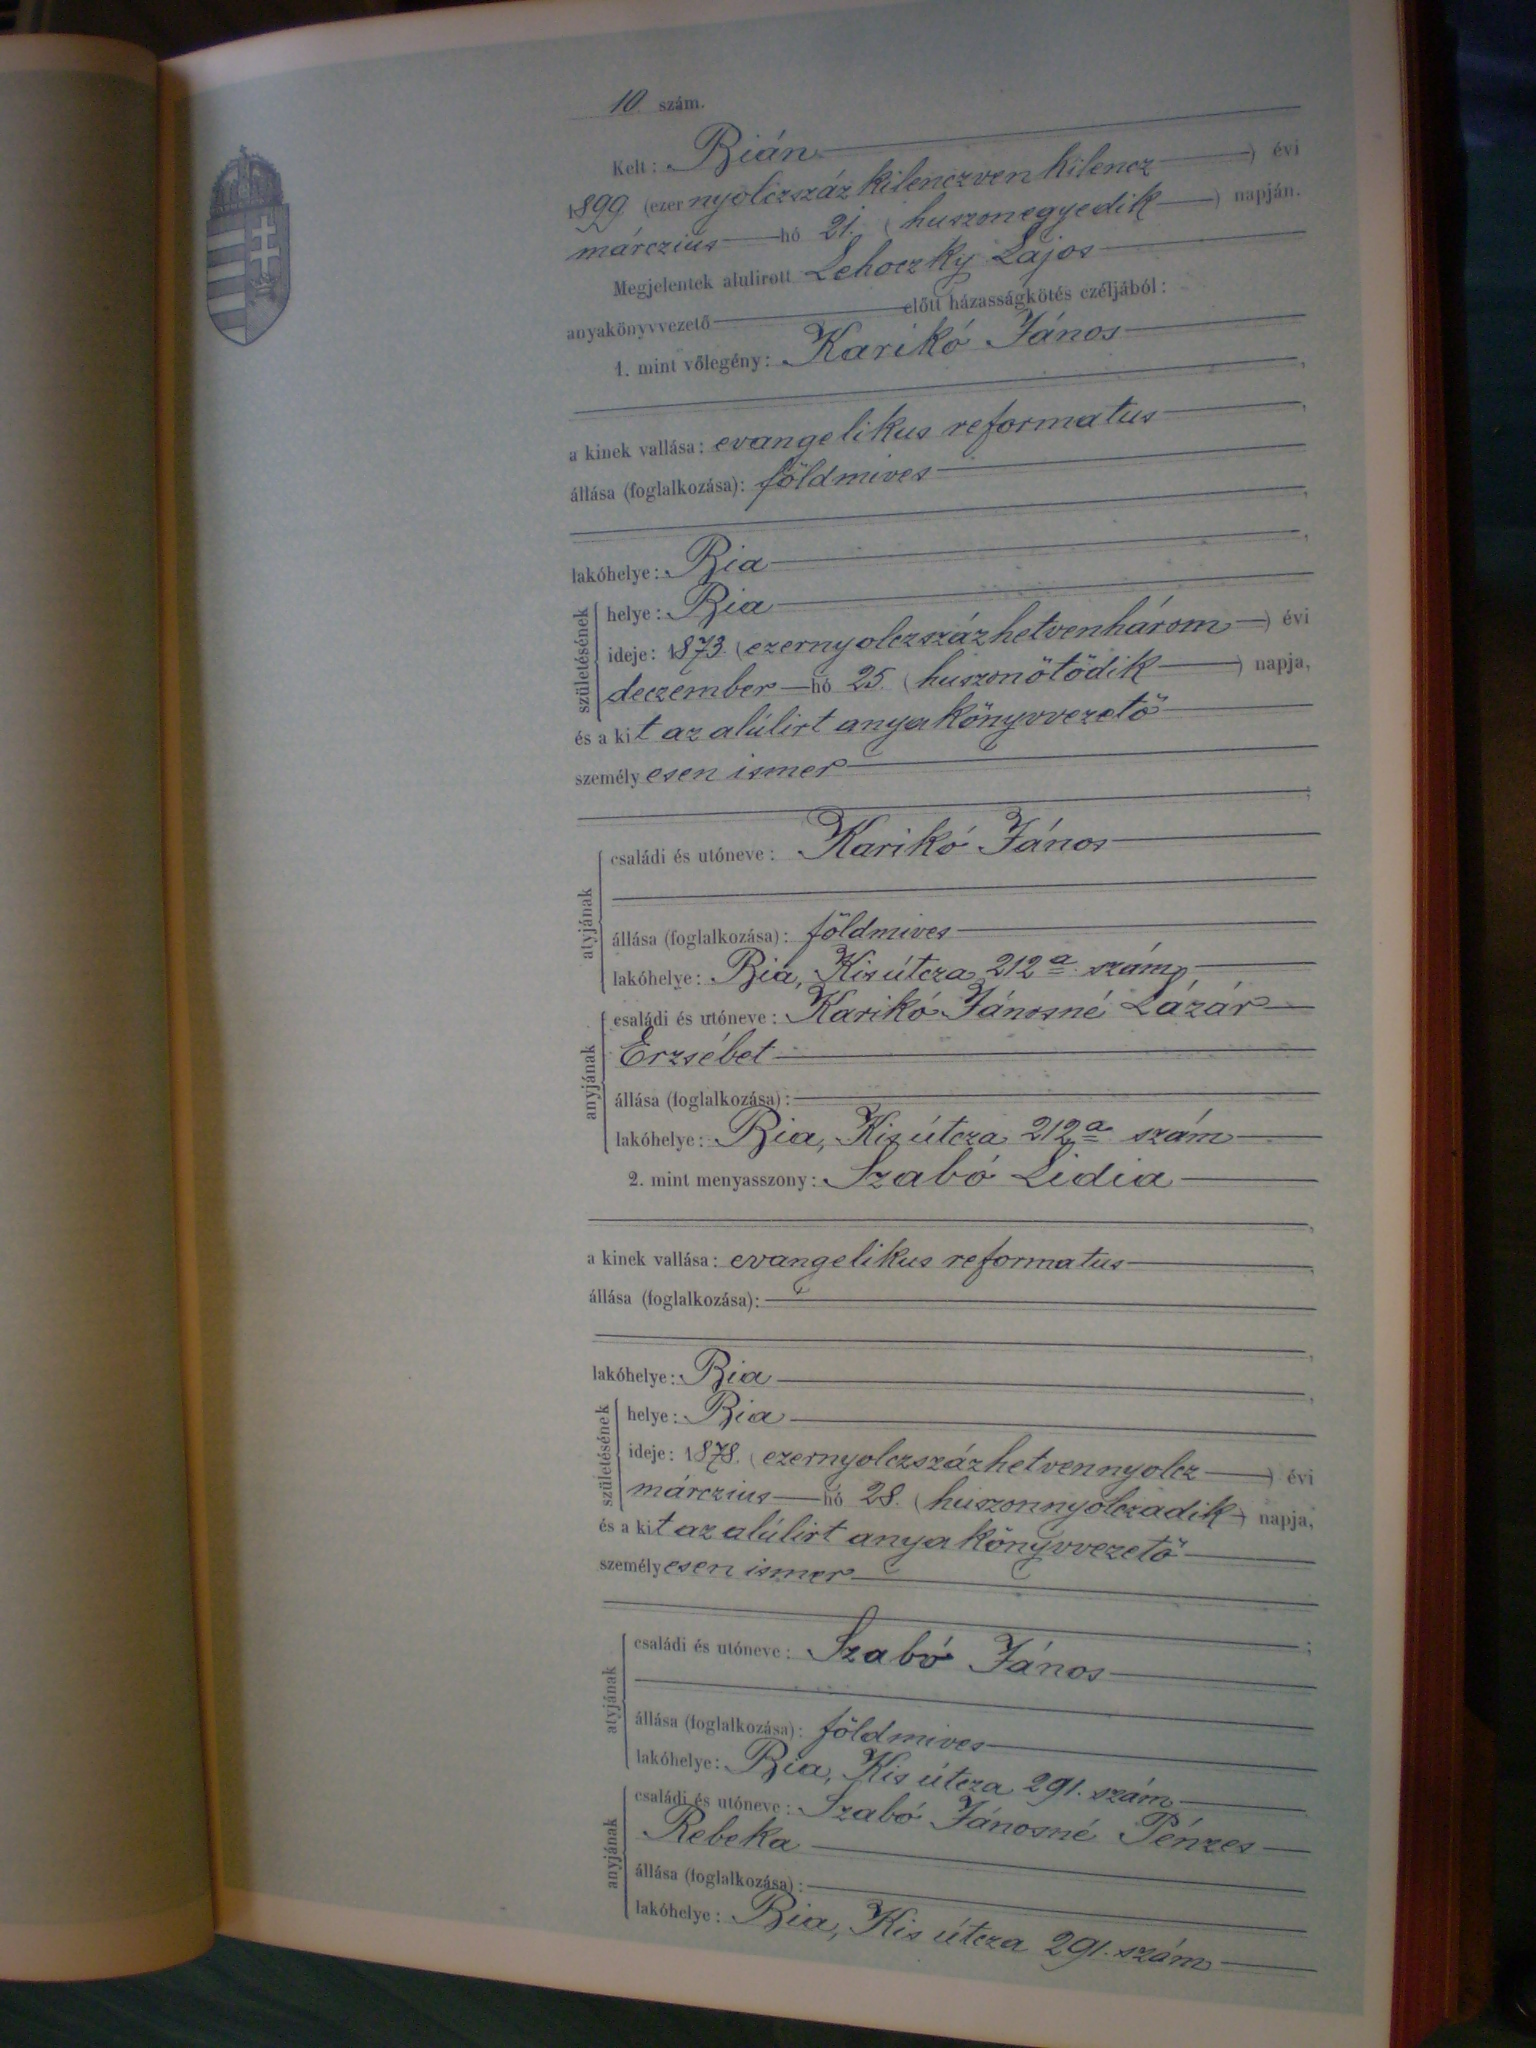 10. szám.
Kelt: Bián
1899 (ezer nyolczszáz kilenczven kilencz) évi
márczius hó 21. (huszonegyedik) napján.
Megjelentek alulirott Lehoczky Lajos
anyakönyvvezető előtt házasságkötés czéljából:
1. mint vőlegény: Karikó János
a kinek vallása: evangelikus reformatus
állása (foglalkozása): földmives
lakóhelye: Bia
születésének
helye: Bia
ideje: 1873. (ezernyolczszázhetvenhárom) évi
deczember hó 25. (huszonötödik) napja,
és a kit az alúlirt anyakönyvvezető
személyesen ismer
atyjának
családi és utóneve: Karikó János
állása (foglalkozása): földmives
lakóhelye: Bia, Kis útcza 212a szám
anyjának
családi és utóneve: Karikó Jánosné Lázár
Erzsébet
állása (foglalkozása):
lakóhelye: Bia, Kis útcza 212a szám
2. mint menyasszony: Szabó Lidia
a kinek vallása: evangelikus reformatus
állása (foglalkozása):
lakóhelye: Bia
születésének
helye: Bia
ideje: 1878. (ezernyolczszázhetvennyolcz) évi
márczius hó 28. (huszonnyolczadik) napja,
és a kit az alúlirt anyakönyvvezető
személyesen ismer
atyjának
családi és utóneve: Szabó János
állása (foglalkozása): földmives
lakóhelye: Bia, Kis útcza 291. szám
anyjának
családi és utóneve: Szabó Jánosné Pénzes
Rebeka
állása (foglalkozása):
lakóhelye: Bia, Kis útcza 291. szám